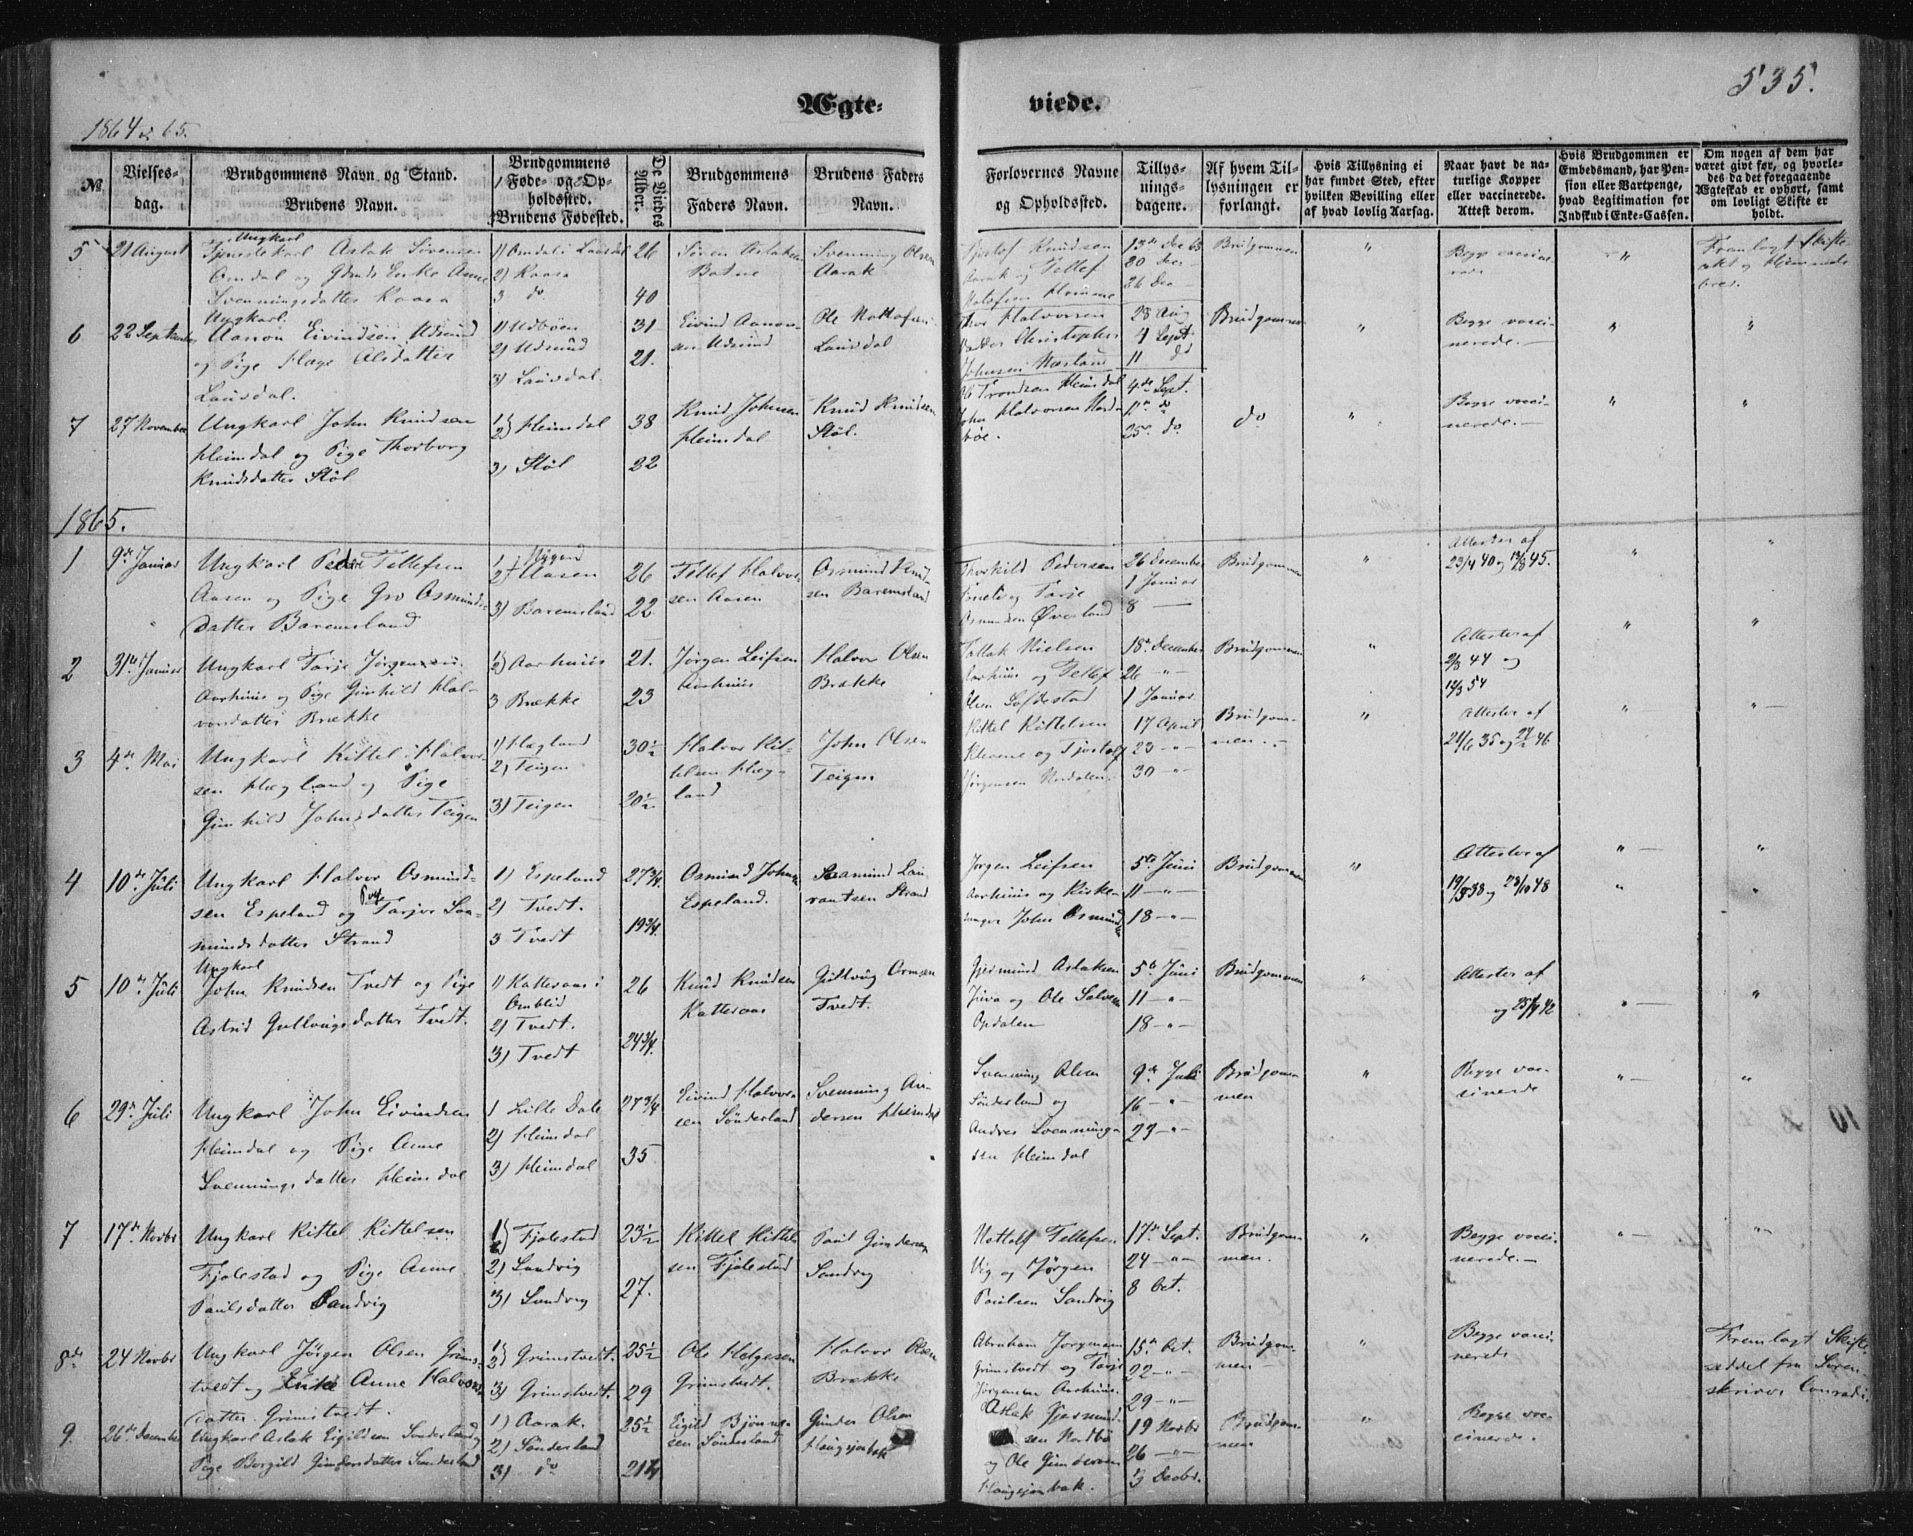 535.
Ægte- viede.
1864 & 65.
No.
Vielses-
dag.
Brudgommens Navn og Stand.
Brudens Navn.
Brudgommens
Føde- og Op-
holdssted.
Brudens Fødested.
De Viedes
Alder.
Brudgommens
Faders Navn.
Brudens Faders
Navn.
Forlovernes Navne
og Opholdssted.
Tillys-
nings-
dagene.
Af hvem Til-
lysningen er
forlangt.
Hvis Tillysning ei
har fundet Sted, efter
hvilken Bevilling eller
af hvad lovlig Aarsag.
Naar havt de na-
turlige Kopper
eller vaccinerede.
Attest derom.
Hvis Brudgommen er
Embedsmand, har Pen-
sion eller Vartpenge,
hvad Legitimation for
Indskud i Enke-Cassen.
Om nogen af dem har
været givt før, og hvorle-
des da det foregaaende
Ægteskab er ophørt, samt
om lovligt Skifte er
holdt.
5 21 August
Ungkarl
Tjenestekarl Aslak Sørensen
Omdal og Gdmds Enke Anne
Svenningsdatter Raasa
1) Omdal i Laurdal
2) Raasa
3 do
26
40
Søren Aslaksen
Svenning Olsen
Aarak
Knudsen
Aarak og Tellef
13de Dec 63
20 Dec
26 Dec
Brudgommen
Begge vacine-
rede
Fremlagt Skifte-
6 22 September
Ungkarl
Aanon Eivindsen Udsund
og Pige Hage Olsdatter
Laursdal.
1) Udbøen
2) Udsund
3) Laursdal.
31
21.
Eivind Aanon-
sen Udsund
Ole Nottolfsen
Laursdal
Thor Halvorsen
Christopher
Johnsen
28 Aug
4 Sept
11 do
Brudgommen
Begge vacci-
nerede.
7 27 November
Ungkarl John Knudsen
Heimdal og Pige Thorborg
Knudsdatter Støl
1)
2) Heimdal
3) Støl
38
22
Knud Johnsen
Heimdal
Knud Knudsen
Støl.
Ole Trondsen Heimdal
John Halvorsen Nord-
bøe.
4de Sept.
11te do
25de do
do
Begge vacci-
nerede.
1865.
1 9de Januar
Ungkarl Peder Tellefsen
Aasen og Pige Gro Osmunds-
datter Baremsland
1 Nygard
2) Aasen
3) Baremsland
26
22
Tellef Halvor-
sen Aasen
Osmund Knud-
sen Baremsland
Thorkild Pedersen
og Tarje
Osmundsen Øvreland
26 December
1 Januar
8 —
Brudgommen
Attester af
23/4 40 og 13/8 45.
2 31te Januar
Ungkarl Tarje Jørgensen
Aarhuus og Pige Gunhild Hal-
vorsdatter Brække
1)
2) Aarhuus
3 Brække
21.
23
Jørgen Leifsen
Aarhuus
Halvor Olsen
Brække
Tallak Nielsen
Aarhuus og Tellef
Olsen
18de December
26 —
1 Januar
Brudgommen
Attester af
2/8 44 og
12/3 54
3 4de Mai
Ungkarl Kittel Halvor-
sen Hægland og Pige
Gunhild Johnsdatter Teigen
1) Hægland
2) Teigen
3) Teigen
30 1/2
20 1/2
Halvor Kit-
telsen Hæg-
land
John Olsen
Teigen
Kittel Kittelsen
og Tjostolf
Jørgensen
17 April
23 —
30 —
Brudgom-
men.
Attester af
24/6 35 og 46
4 10de Juli
Ungkarl Halvor Osmund-
sen Espeland og Pige Tarjer Saa-
mundsdatter Strand
1) Espeland
2) Tvedt.
3 Tvedt
27 3/4
19 3/4
Osmund Johnsen
Espeland.
Saamund Lau-
rantsen Strand
Jørgen Leifsen
Aarhuus og Kirke-
sanger John Osmunds-
5te Juni
11 —
18 —
Brudgommen
Attester af
19/5 38 og 28/10 48
5 10de Juli
Ungkarl
John Knudsen Tvedt og Pige
Astrid Gullvigsdatter Tvedt.
1) Katteraas i
Omblid
2) Tvedt.
3) Tvedt
26
24 3/4.
Knud Knudsen
Katteraas
Gullvig Ormsen
Tvedt.
Gjermund Aslaksen
Juva og Ole Salvesen
Opdalen
5te Juni
11 —
18 —
Brudgommen
Attester af
og 25/9 42
6 29de Juli
Ungkarl John Eivindsen
Heimdal og Pige Anne
Svenningsdatter Heimdal
1 Lille Dale
2) Heimdal
3) Heimdal
27 3/4
35
Eivind Halvor-
sen Sønderland
Svenning An-
dersen Heimdal
Svenning Olsen
Sønderland og
Anders Svenning-
sen Heimdal
9de Juli
16 —
23 —
Brudgom-
men
Begge vac-
cinerede
7 17de Novbr
Ungkarl Kittel Kittelsen
Fjalestad og Pige Anne
Paulsdatter Sandvig
1) Fjalestad
2) Sandvig
3) Sandvig
23 1/2
27.
Kittel Kittel-
sen Fjalestad
Paul Gundersen
Sandvig
Nottolf Tellefsen
Vig og Jørgen
Paulsen Sandvig
17de Sept.
24 —
8 Oct.
Brudgom-
men.
Begge vacci-
nerede.
8de 24 Novbr
Ungkarl Jørgen Olsen Grims-
tvedt og Enke Anne Halvors-
datter Grimstvedt.
1)
2) Grimstvedt.
3) Grimstvedt.
25 1/2
29
Ole Helgesen
Grimstvedt.
Halvor Olsen
Brække
Abraham Jørgensen
Grimstvedt og Tarje
Jørgensen Aarhuus
15de Oct.
22 —
29 —
Brudgom-
men
Begge vacci-
nerede
Fremlagt Skifte-
seddel fra Soren-
skriver Conradi
9 26de December
Ungkarl Aslak Eigildsen Sønderland og
Pige Borgild Gundersdatter Sønderland
1) Aarak.
2) Sønderland
3) do
25 1/2
21 1/4
Eigild Bjønn-
sen Sønderland
Gunder Olsen
Haugsjaabak
Aslak Gjermund-
sen Nordbø
og Ole Gundersen
Haugsjaabak.
19 Novbr
26 —
3 Decbr.
Brudgom-
men
Begge vac-
cinerede.